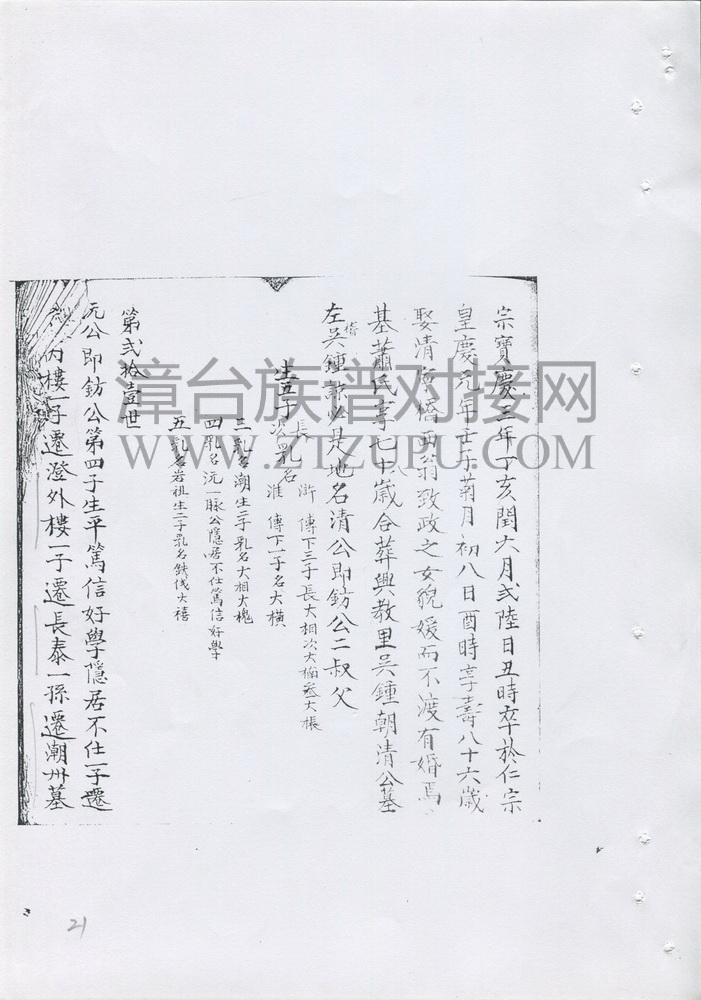 宗寶慶三年丁亥閏六月弍陸日丑時卒於仁宗
皇慶元年壬子菊月初八日酉時享壽八十六歲
娶清寶橋西翁致政之女貌媛而不渡有婚焉
基蕭氏享七十八歲合葬興教里吳鍾朝清公墓
左倚吳鍾 必是地名清公即鈁公二叔父
生五子
長 滸 傳下三子長大相次大 叁大振
次乳名 淮 傳下一子名大橫
三乳名潮生二子乳名大相大槐
四乳名沅一脉公隱居不仕篤信好學
五乳名岩祖生二子乳名鉄伐大禧
第弍拾壹世
沅公即鈁公第四子生平篤信好學隱居不仕一子遷
內樓一子遷澄外樓一子遷長泰一孫遷潮州墓
漳台族谱对接网
WWW.ZTZUPU.COM
21